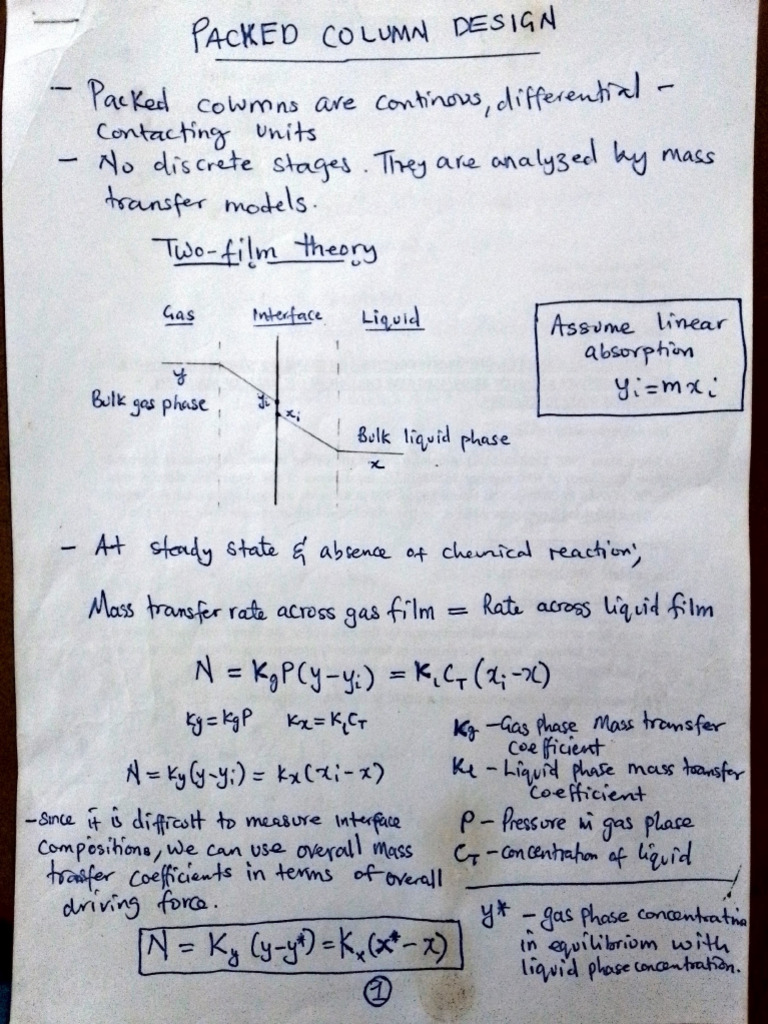 PACKED COLUMN DESIGN
- Packed columns are continous, differential -
contacting units
- No discrete stages. They are analyzed by mass
transfer models.
Two-film theory
Gas Interface Liquid
y
Bulk gas phase
yi
xi
Bulk liquid phase
x
Assume linear
absorption
yi = mxi
- At steady state & absence of chemical reaction;
Mass transfer rate across gas film = Rate across liquid film
N = KgP(y-yi) = KLCT(xi-x)
ky = kgP kx = KLCT
N = ky(y-yi) = kx(xi-x)
Kg - Gas phase Mass transfer
coefficient
KL - Liquid phase mass transfer
coefficient
P - Pressure in gas phase
CT - concentration of liquid
- Since it is difficult to measure interface
compositions, we can use overall mass
transfer coefficients in terms of overall
driving force.
N = Ky (y-y*) = Kx(x*-x)
y* - gas phase concentration
in equilibrium with
liquid phase concentration.
1